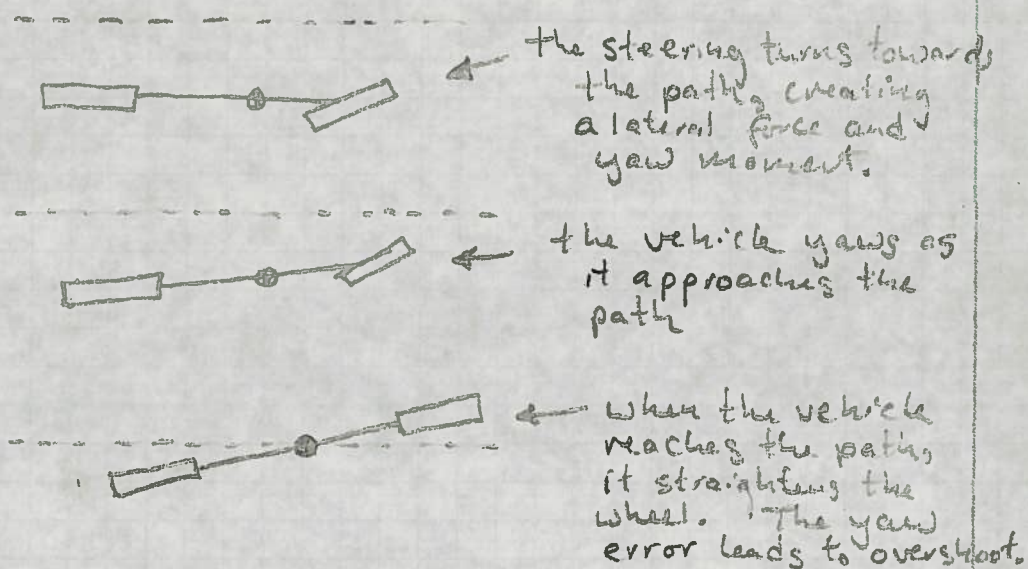 the steering turns towards
the path, creating
a lateral force and
yaw moment.
the vehicle yaws as
it approaches the
path
when the vehicle
reaches the path,
it straightens the
wheel. The yaw
error leads to overshoot.